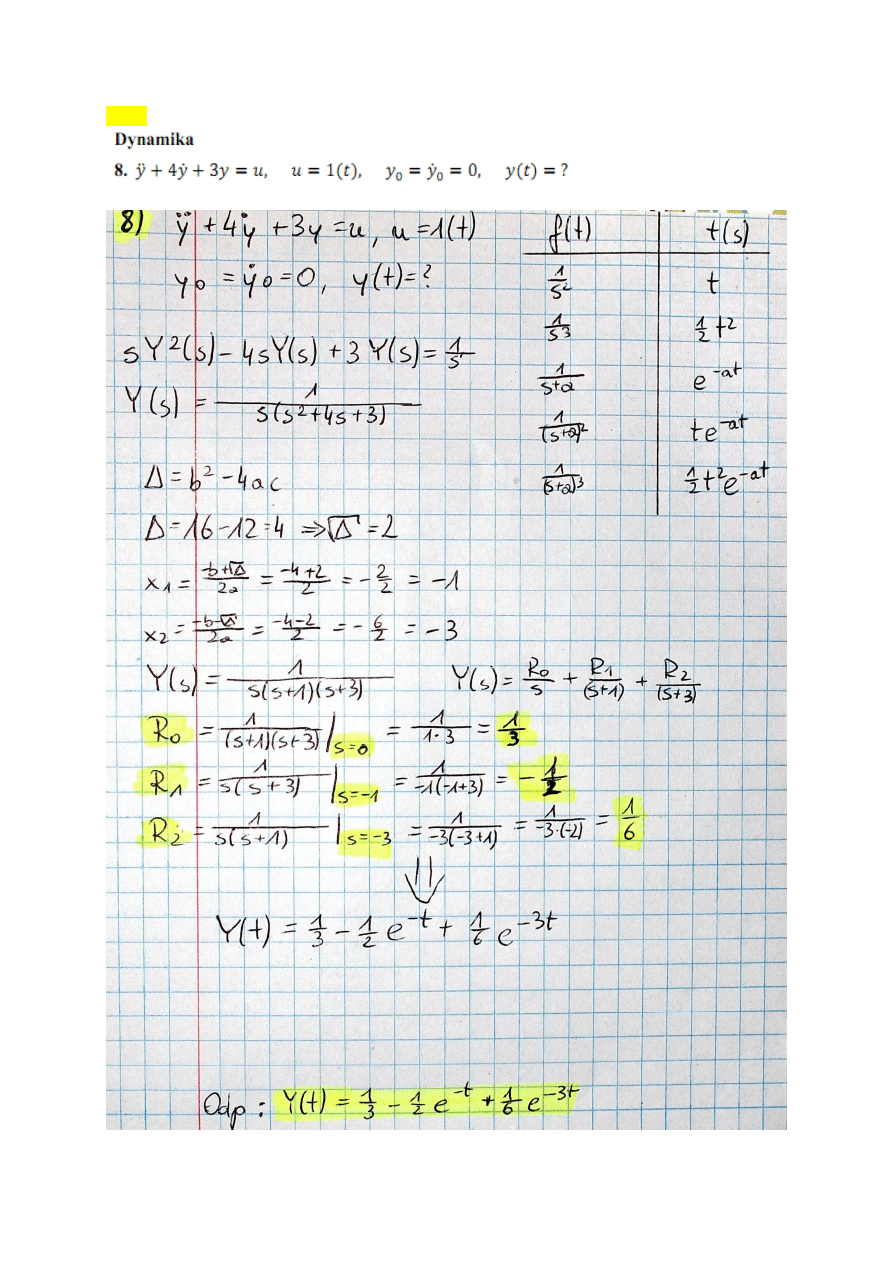 Dynamika
8. ÿ + 4ẏ + 3y = u, u = 1(t), y₀ = ẏ₀ = 0, y(t) = ?
8) ÿ + 4ẏ + 3y = u, u = 1(t)
y₀ = ẏ₀ = 0, y(t) = ?
f(t) t(s)
1/s² t
1/s³ 1/2 t²
1/(s+a) e^-at
1/(s+a)² te^-at
1/(s+a)³ 1/2 t²e^-at
sY²(s) - 4sY(s) + 3Y(s) = 1/s
Y(s) = 1/(s(s²+4s+3))
Δ = b² - 4ac
Δ = 16 - 12 = 4 ⇒ √Δ = 2
x₁ = (-b+√Δ)/2a = (-4+2)/2 = -2/2 = -1
x₂ = (-b-√Δ)/2a = (-4-2)/2 = -6/2 = -3
Y(s) = 1/(s(s+1)(s+3)) Y(s) = R₀/s + R₁/(s+1) + R₂/(s+3)
R₀ = 1/((s+1)(s+3)) |s=0 = 1/(1·3) = 1/3
R₁ = 1/(s(s+3)) |s=-1 = 1/(-1(-1+3)) = -1/2
R₂ = 1/(s(s+1)) |s=-3 = 1/(-3(-3+1)) = 1/(-3·(-2)) = 1/6
⇓
Y(t) = 1/3 - 1/2 e^-t + 1/6 e^-3t
Odp : Y(t) = 1/3 - 1/2 e^-t + 1/6 e^-3t